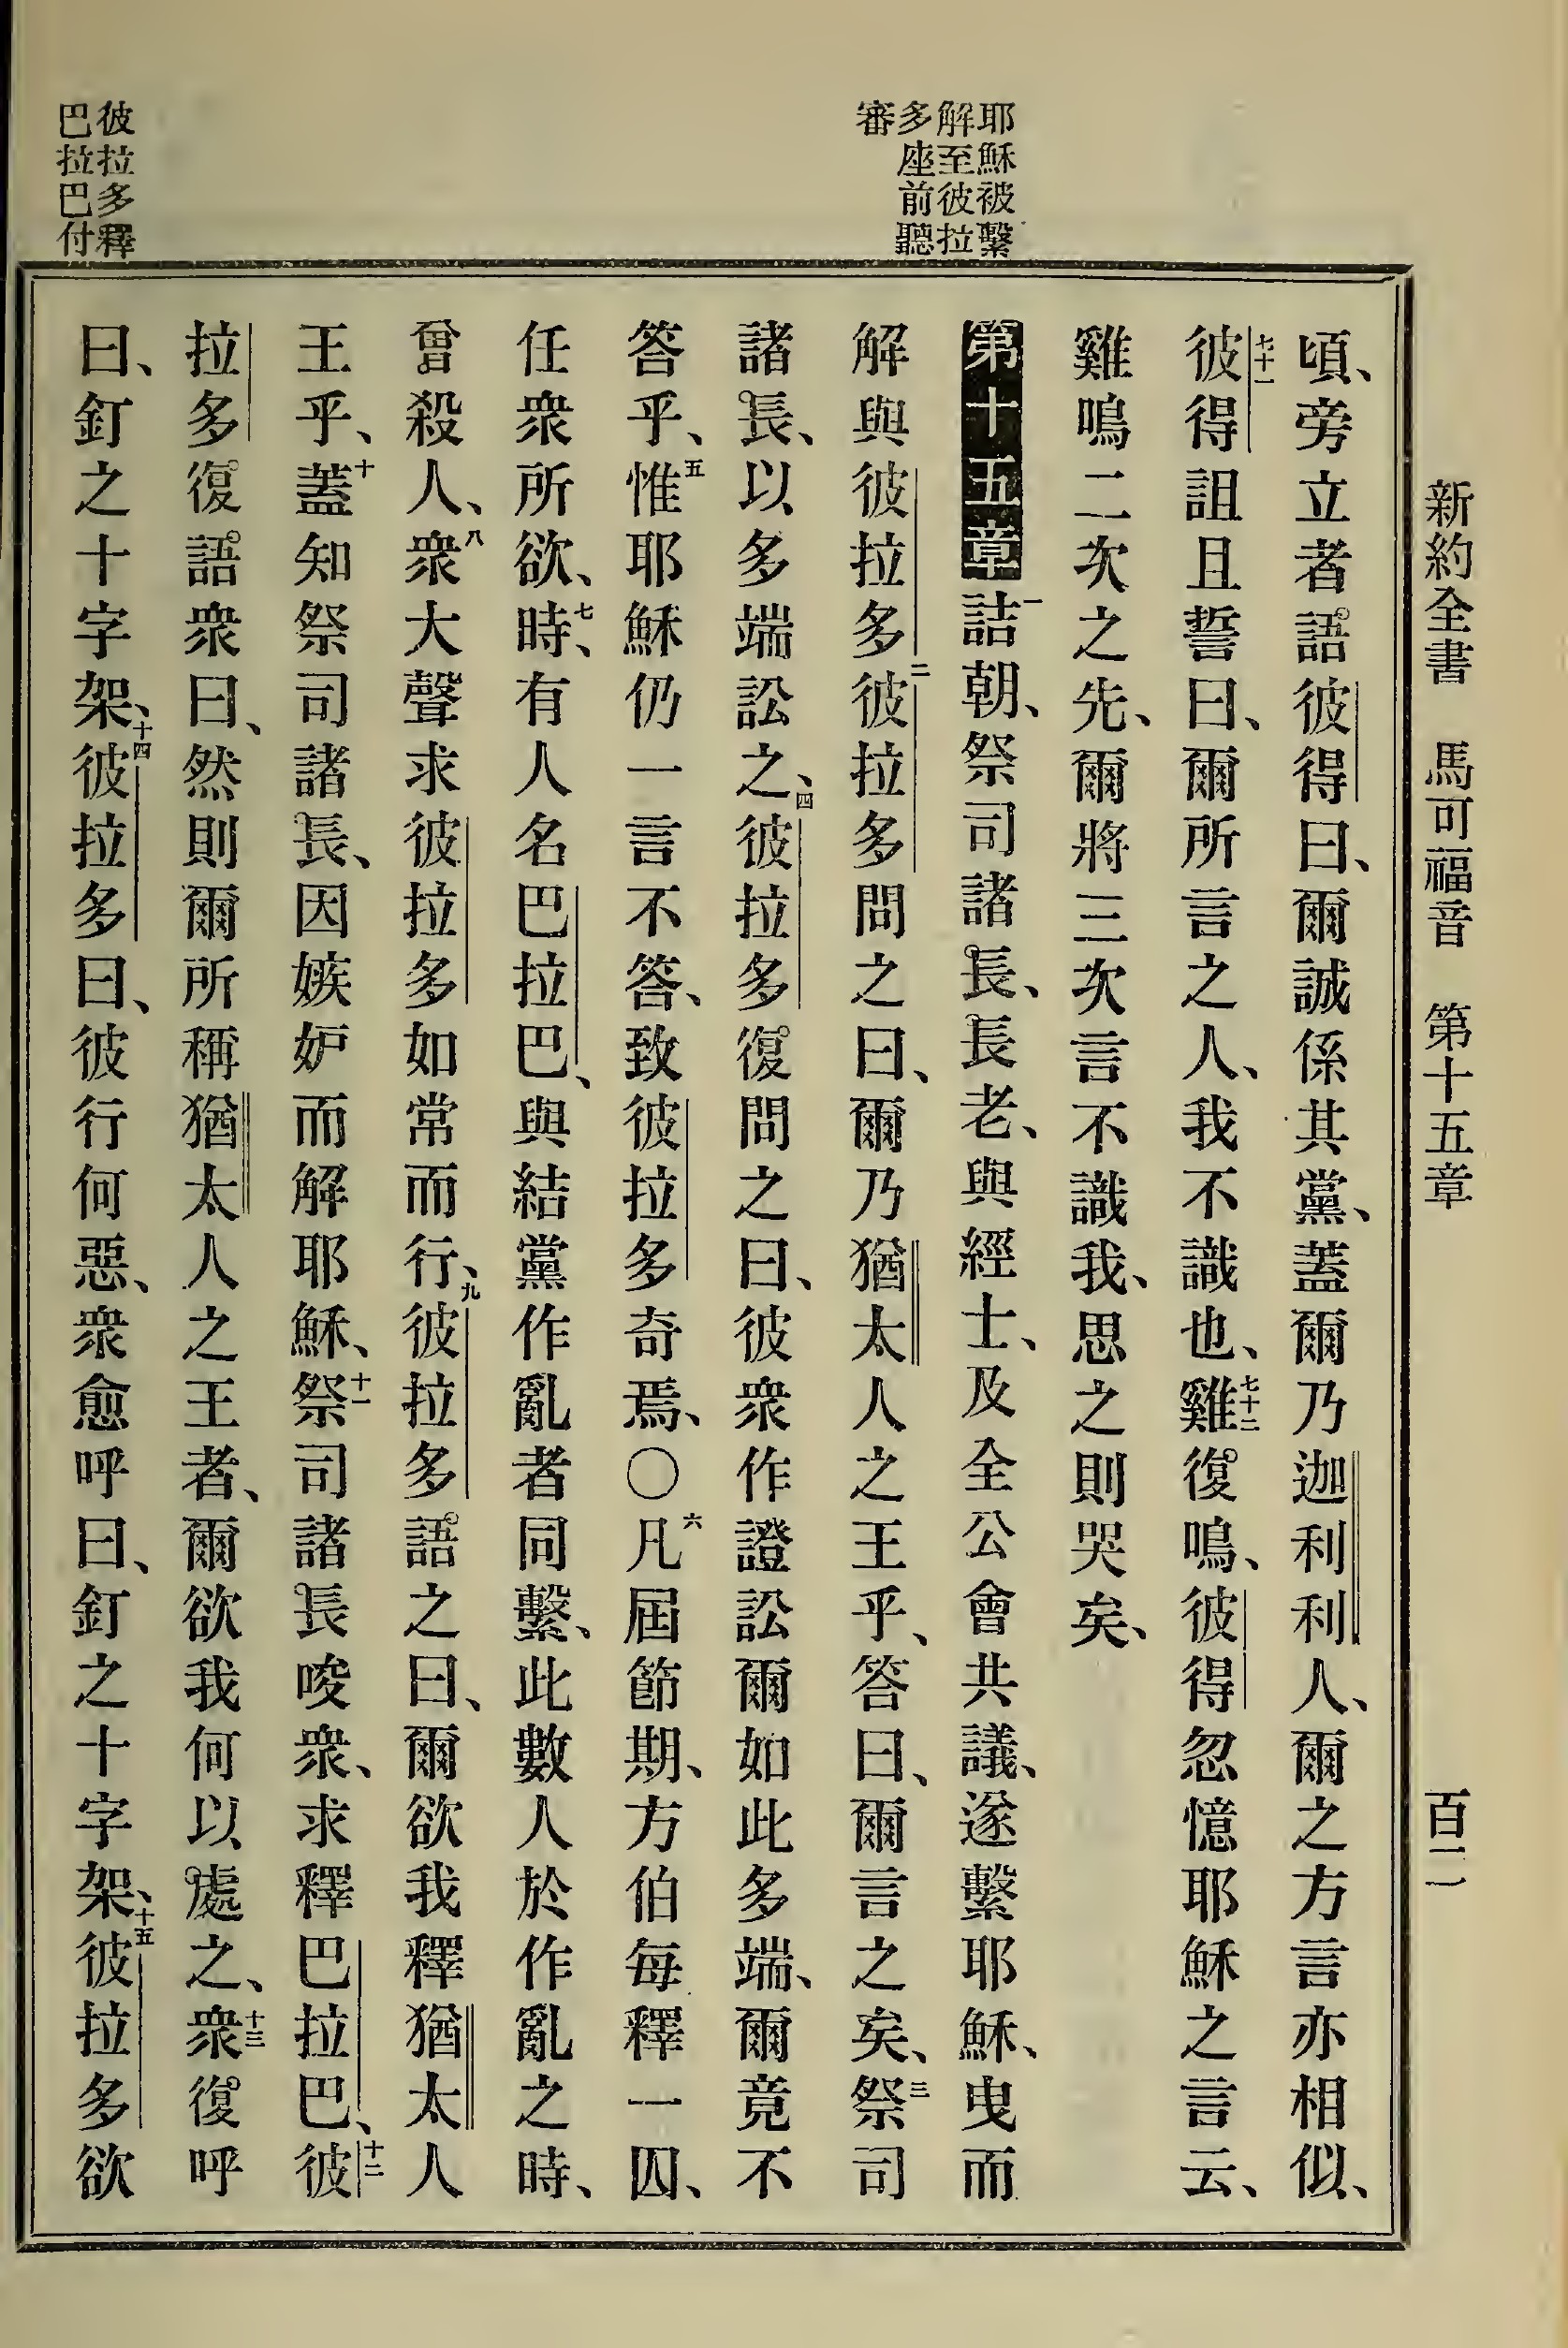 新約全書 馬可福音 第十五章 百二
耶穌被繫
解至彼拉
多座前聽
審
彼拉多釋
巴拉巴付
頃、旁立者語彼得曰、爾誠係其黨、蓋爾乃迦利利人、爾之方言亦相似、
七十一彼得詛且誓曰、爾所言之人、我不識也、七十二雞復鳴、彼得忽憶耶穌之言云、
雞鳴二次之先、爾將三次言不識我、思之則哭矣、
第十五章一詰朝、祭司諸長、長老、與經士、及全公會共議、遂繫耶穌、曳而
解與彼拉多二彼拉多問之曰、爾乃猶太人之王乎、答曰、爾言之矣、三祭司
諸長、以多端訟之、四彼拉多復問之曰、彼衆作證訟爾如此多端、爾竟不
答乎、五惟耶穌仍一言不答、致彼拉多奇焉、〇六凡屆節期、方伯每釋一囚、
任衆所欲、七時、有人名巴拉巴、與結黨作亂者同繫、此數人於作亂之時、
曾殺人、八衆大聲求彼拉多如常而行、九彼拉多語之曰、爾欲我釋猶太人
王乎、十蓋知祭司諸長、因嫉妒而解耶穌、十一祭司諸長唆衆、求釋巴拉巴、十二彼
拉多復語衆曰、然則爾所稱猶太人之王者、爾欲我何以處之、十三衆復呼
曰、釘之十字架、十四彼拉多曰、彼行何惡、衆愈呼曰、釘之十字架、十五彼拉多欲